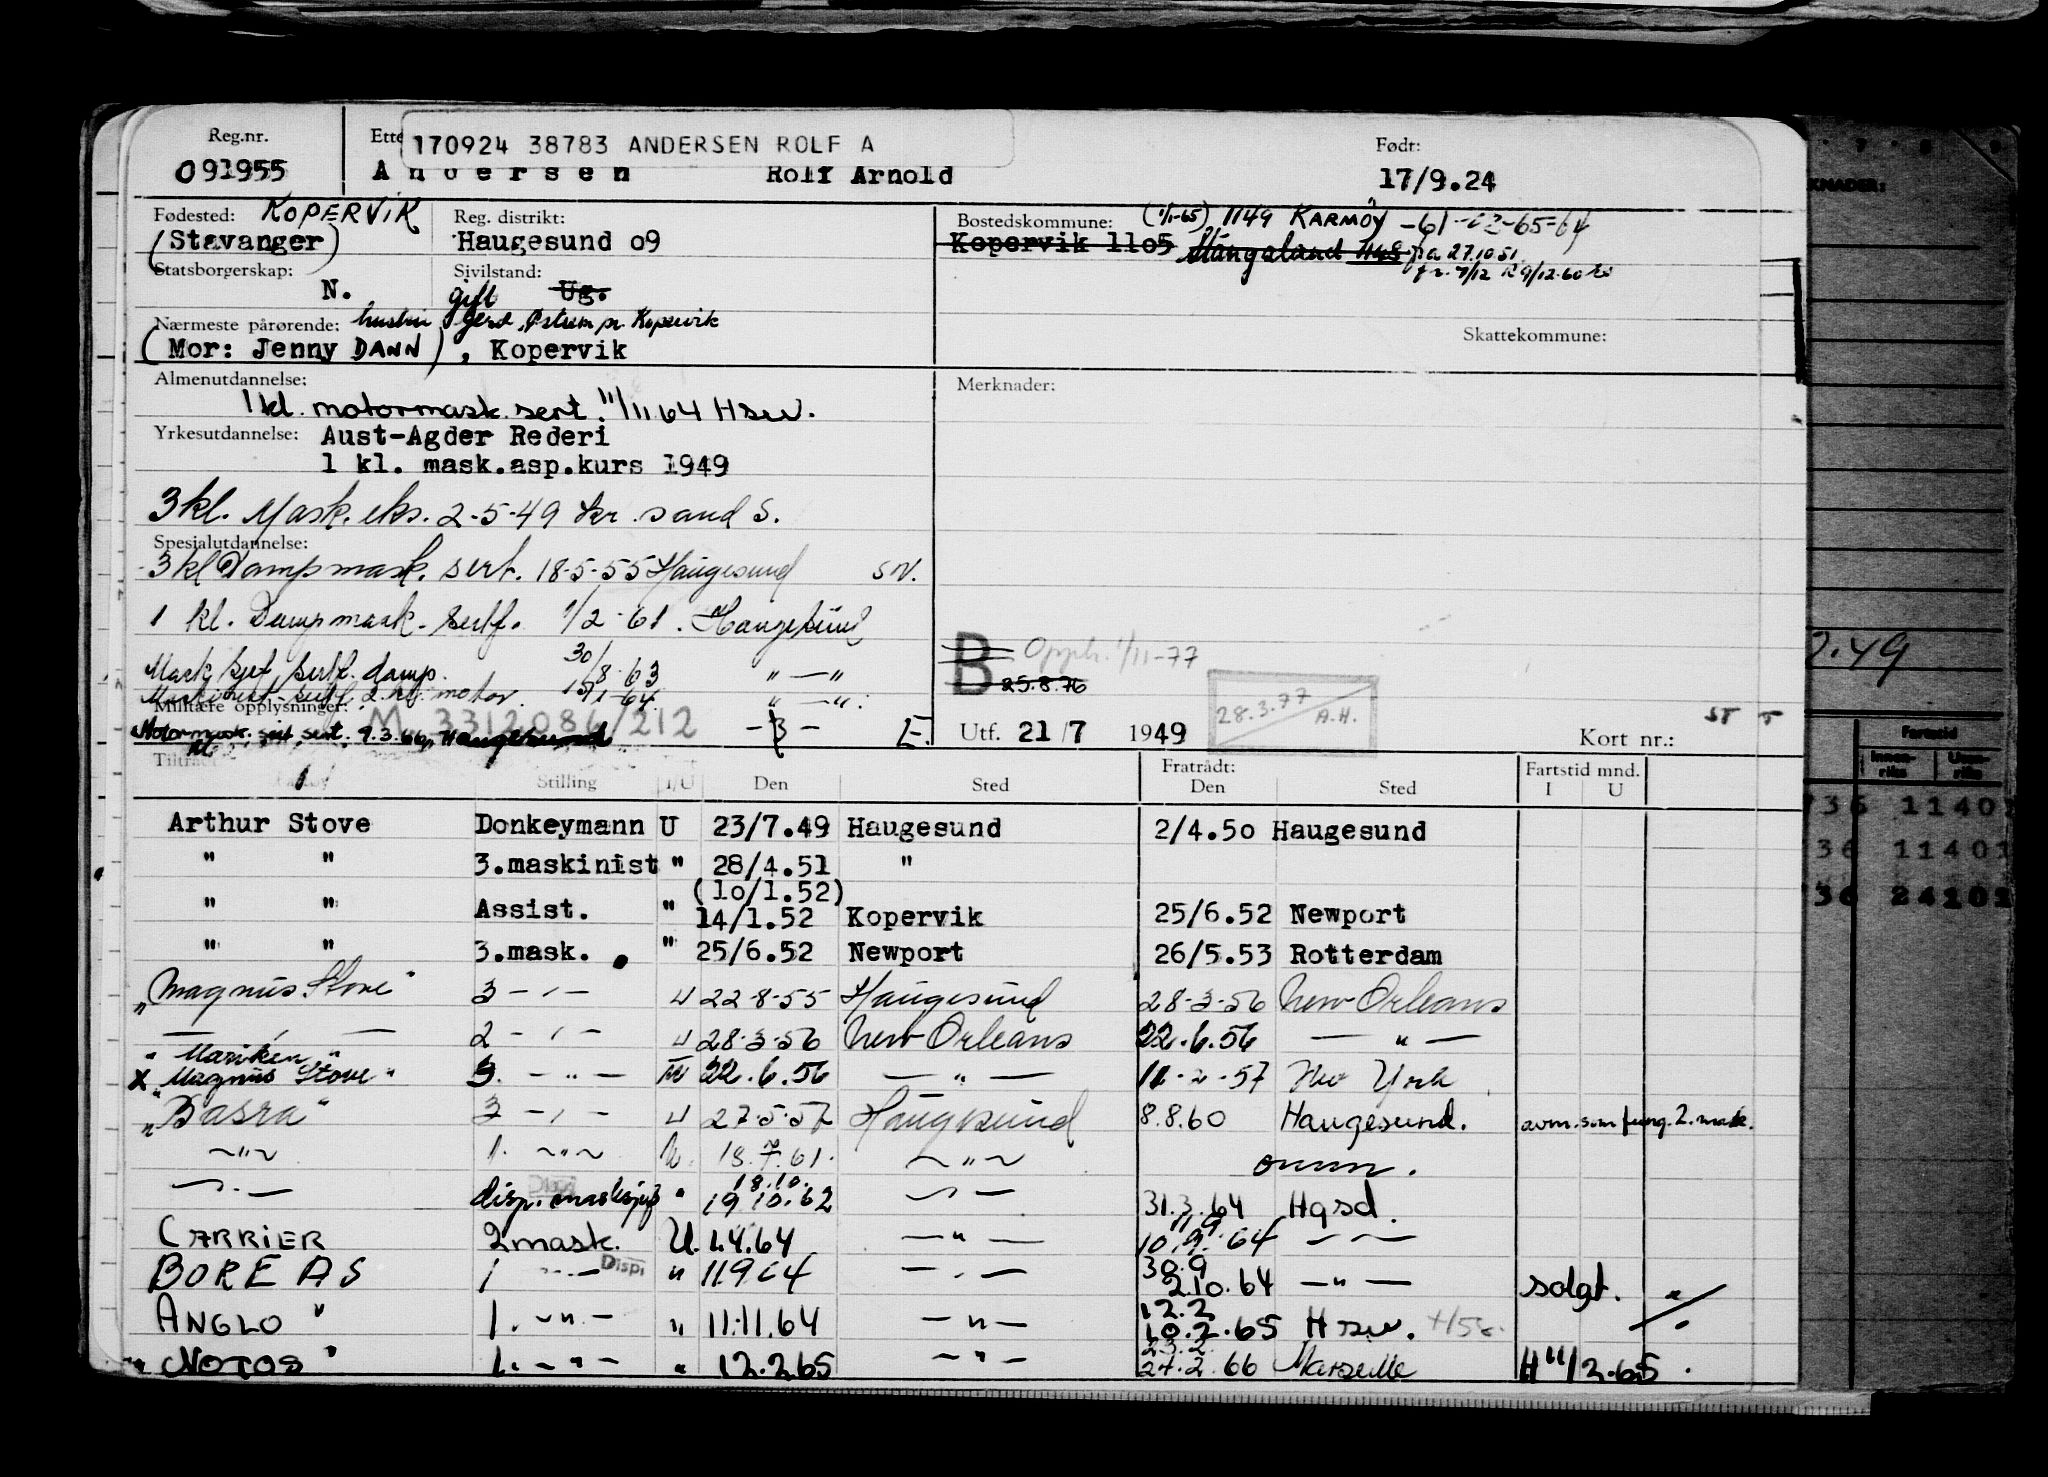 Reg.nr.
091955
Ette
170924 38783 ANDERSEN ROLF A
Andersen Rolf Arnold
Født:
17/9.24
Fødested: KOPERVIK
(Stavanger)
Reg. distrikt:
Haugesund o9
Bostedskommune: (1/1-65) 1149 KARMÖY -61-62-65-64
Kopervik 11o5 fra 27.10.51
Statsborgerskap:
N.
Sivilstand:
gift Ug.
Nærmeste pårørende: hustru Gerd, Kopervik
(Mor: Jenny DANN), Kopervik
Skattekommune:
Almenutdannelse:
1 kl. motormask.sert. 11/11 64 Hsw.
Merknader:
Yrkesutdannelse: Aust-Agder Rederi
1 kl. mask.asp.kurs 1949
3kl. Mask.eks. 2-5-49 Kr.sand S.
Spesialutdannelse:
3 kl Dampmask. sert. 18-5-55 Haugesund SN.
1 kl. Dampmask. sertf. 1/2-61. Haugesund
Mask sjef sertf. damp. 30/8-63 " — "
Maskinist-sertf. 2 kl. motor. " — "
B Opph. 1/11-77
25.8.76
28.3.77 A.H.
Militære opplysninger: M 3312086/212
Motormask. sjef sert. 9.3.66, Haugesund
- 3 - E.
Utf. 21/7 1949
Kort nr.:
Tiltrådt
Stilling I/U Den Sted
Fratrådt: Den Sted
Fartstid mnd. I U
Arthur Stove Donkeymann U 23/7.49 Haugesund 2/4.50 Haugesund
" " 3.maskinist " 28/4.51 "
(1o/1.52)
" " Assist. " 14/1.52 Kopervik 25/6.52 Newport
" " 3.mask. " 25/6.52 Newport 26/5.53 Rotterdam
"Magnus Stove" 3 - " - U 22-8-55 Haugesund 28-3-56 New Orleans
— " — 2 - " - U 28-3-56 New Orleans 22.6.56 — " —
"Mariken"
X "Magnus Stove" 3. - " - 22.6.56 — " — 11-2-57 New York
"Basra" 3 - " - U 27-5-57 Haugesund 8.8.60 Haugesund. avm. som fung. 2. mask.
~"~ 1. ~"~ U. 18.7.61. ~"~ omm.
18.10.
— " — disp. masksjef " 19.10.62 — " — 31.3.64 Hgsd.
11.9
CARRIER 2 mask. U. 1.4.64 — " — 10.9.64 — " —
30.9
BOREAS 1 - " - Disp " 11.9.64 — " — 2.10.64 — " — solgt.
12.2
ANGLO " 1. - " - " 11.11.64 — " — 10.2.65 Hsw.
23.2
"NOTOS" 1. - " - " 12.2.65 — " — 24.2.66 Marseille H 11/2.65.
KNADER:
2.49
Fartstid
Innen-riks Uten-riks
36 11401
36 11401
36 24101